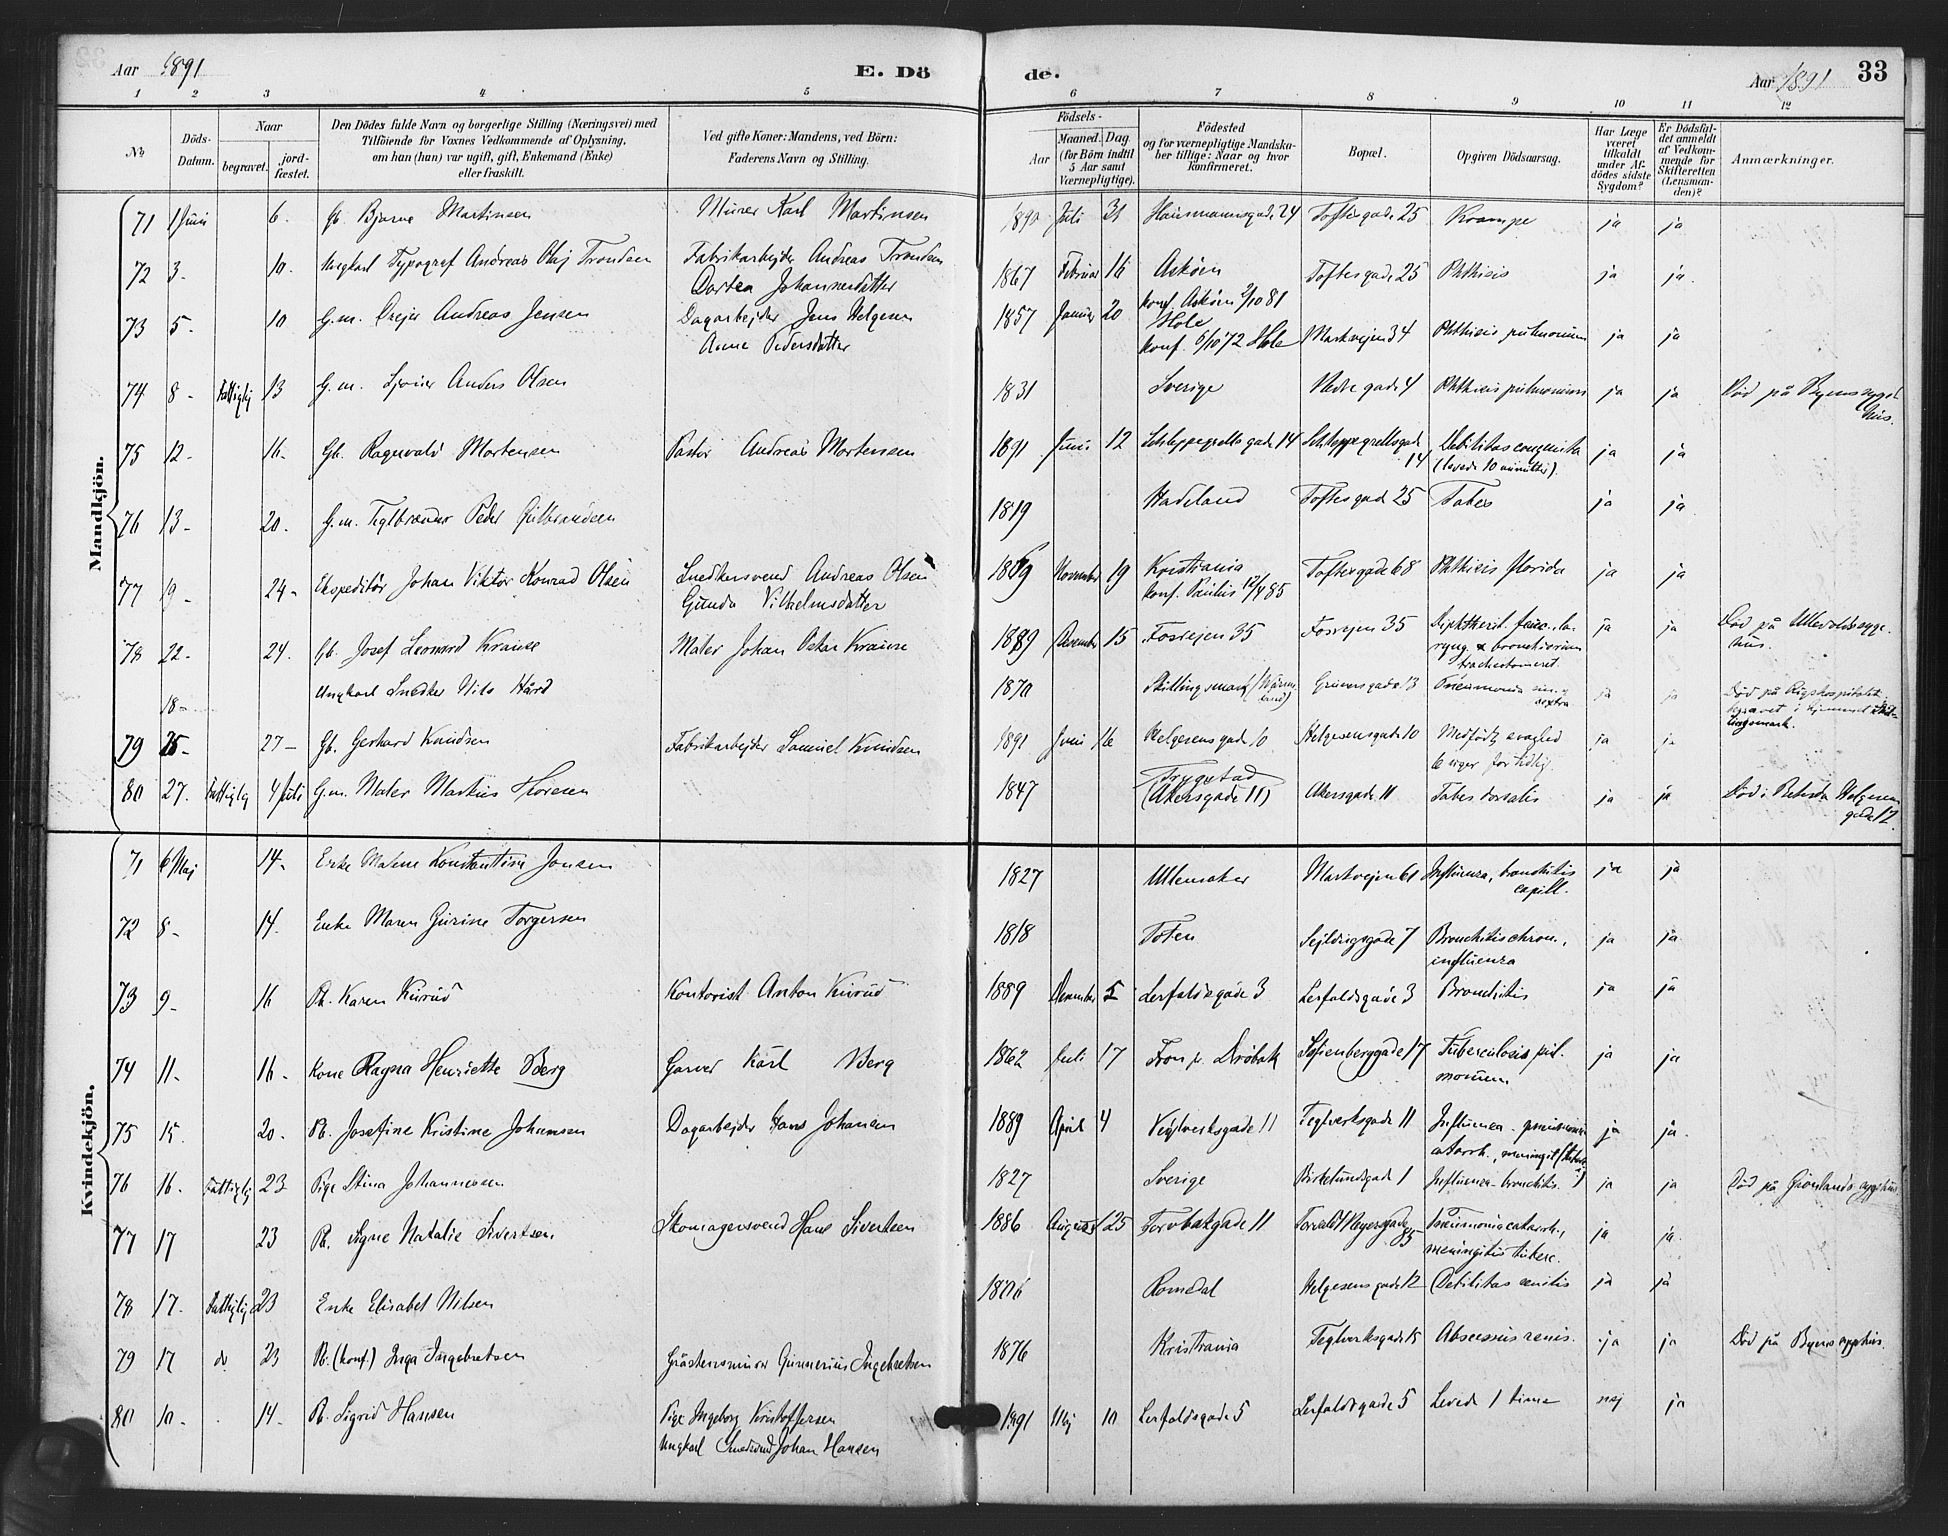 Aar 1891 E. Dö de. Aar 1891 33
1 2 3 4 5 6 7 8 9 10 11 12
No Döds-Datum. Naar begravet. jordfæstet. Den Dödes fulde Navn og borgerlige Stilling (Næringsvei) med Tilföiende for Voxnes Vedkommende af Oplysning, om han (hun) var ugift, gift, Enkemand (Enke) eller fraskilt. Ved gifte Koner: Mandens, ved Börn: Faderens Navn og Stilling. Födsels- Aar Maaned. Dag. (for Börn indtil 5 Aar samt Værnepligtige). Födested og for værnepligtige Mandskaber tillige: Naar og hvor konfirmeret. Bopæl. Opgiven Dödsaarsag. Har Læge været tilkaldt under Afdödes sidste Sygdom? Er Dödsfaldet anmeldt af Vedkommende for Skifteretten (Lensmanden)? Anmærkninger.
Mandkjön.
71 1 Juni 6. Gb. Bjarne Martinsen Murer Karl Martinsen 1890 Juli 31 Hausmannsgade 24 Toftesgade 25 Krampe ja ja
72 3. 10. Ungkarl Typograf Andreas Olaj Trondsen Fabrikarbejder Andreas Trondsen 1867 Februar 16 Askim Toftesgade 25 Phthisis ja ja
Dortea Johannesdatter konf. Askim 2/10 81
73 5. 10 G.m. Drejer Andreas Jensen Dagarbejder Jens Helgesen 1857 Januar 20 Hole Markvejen 34 Phthisis pulmonum ja ja
Anne Pedersdatter konf. 6/10 72 Hole
74 8 - Fattiglig 13 G.m. Sjauer Anders Olsen 1831 Sverige Nedre gade 4 Phthisis pulmonum ja ja Död på Byens sygehus.
75 12 - 16 - Gb. Ragnvald Mortensen Pastor Andreas Mortensen 1891 Juni 12 Schleppegrells gade 14 Schleppegrellsgade 14 Debilitas congenita ja ja
(levede 10 minutter).
76 13 - 20. G.m. Teglbrænder Peder Gulbrandsen 1819 Hadeland Toftesgade 25 Tabes ja ja
77 19 - 24 - Ekspeditör Johan Viktor Konrad Olsen Snedkersvend Andreas Olsen 1869 November 19 Kristiania Toftesgade 68 Phthisis florida ja ja
Gunda Vilhelmsdatter konf. Paulus 12/4 85
78 22 - 24. Gb. Josef Leonard Krause Maler Johan Oskar Krause 1889 December 15 Fosvejen 35 Fosvejen 35 Diphtherit. fauc. laryng. & bronchiorum ja ja Död på Ullevolds sygehus.
tracheotomeret
18 - Ungkarl Snedker Nils Hård 1870 Skillingsmark (Värmland) Grünersgade 13 Pneumonia ja ja Död på Rigshospitalet, begravet i Skillingsmark.
79 25 - 27 - Gb. Gerhard Knudsen Fabrikarbejder Samuel Knudsen 1891 Juni 16 Helgesensgade 10 Helgesensgade 10 Medfödt svaghed ja ja
6 uger for tidlig.
80 27. Fattiglig 4 Juli G.m. Maler Markus Thoresen 1847 Trygstad (Akersgade 11) Akersgade 11 Tabes dorsalis ja ja Död i Betesda Helgesens gade 12.
Kvindekjön.
71 6 Maj 14 - Enke Malene Konstantine Jonsen 1827 Ullensaker Markvejen 61 Influenza, bronchitis capill. ja ja
72 8 - 14. Enke Maren Gurine Torgersen 1818 Toten Sejldugsgade 7 Bronchitis chron., influenza ja ja
73 9 - 16 Pb. Karen Kurud Kontorist Anton Kurud 1889 December 5 Lerfaldsgade 3 Lerfaldsgade 3 Bronchitis ja ja
74 11 - 16 - Kone Ragna Henriette Berg Garver Karl Berg 1862 Juli 17 Fron pr. Dröbak Sofienberggade 17 Tuberculosis pulmonum ja ja
75 15. 20. Pb. Josefine Kristine Johansen Dagarbejder Hans Johansen 1889 April 4 Teglverksgade 11 Teglverksgade 11 Influenza - pneumonia catarrh., meningit ja ja
76 16. Fattiglig 23 Pige Stina Johannessen 1827 Sverige Birkelundsgade 1 Influenza - bronchitis. ja ja Död på Grönlands sygehus
77 17 23 Pb. Signe Natalie Sivertsen Skomagersvend Hans Sivertsen 1886 August 25 Torvbakgade 11 Torvald Meyersgade 85 Pneumonia catarrh., meningitis tuberc. ja ja
78 17. Fattiglig 23 Enke Elisabet Nilsen Romedal Helgesensgade 12 Debilitas senilis ja ja
79 17 do 23 Pb. (konf.) Inga Ingebretsen Gråstensmurer Gunnerius Ingebretsen 1876 Kristiania Teglverksgade 15 Abscessus renis. ja ja Död på Byens sygehus.
80 10 - 14 - Pb. Sigrid Hansen Pige Ingeborg Kristoffersen 1891 Maj 10 Lerfaldsgade 5 Lerfaldsgade 5 Levede 1 time nej ja
Ungkarl Smedsvend Johan Hansen